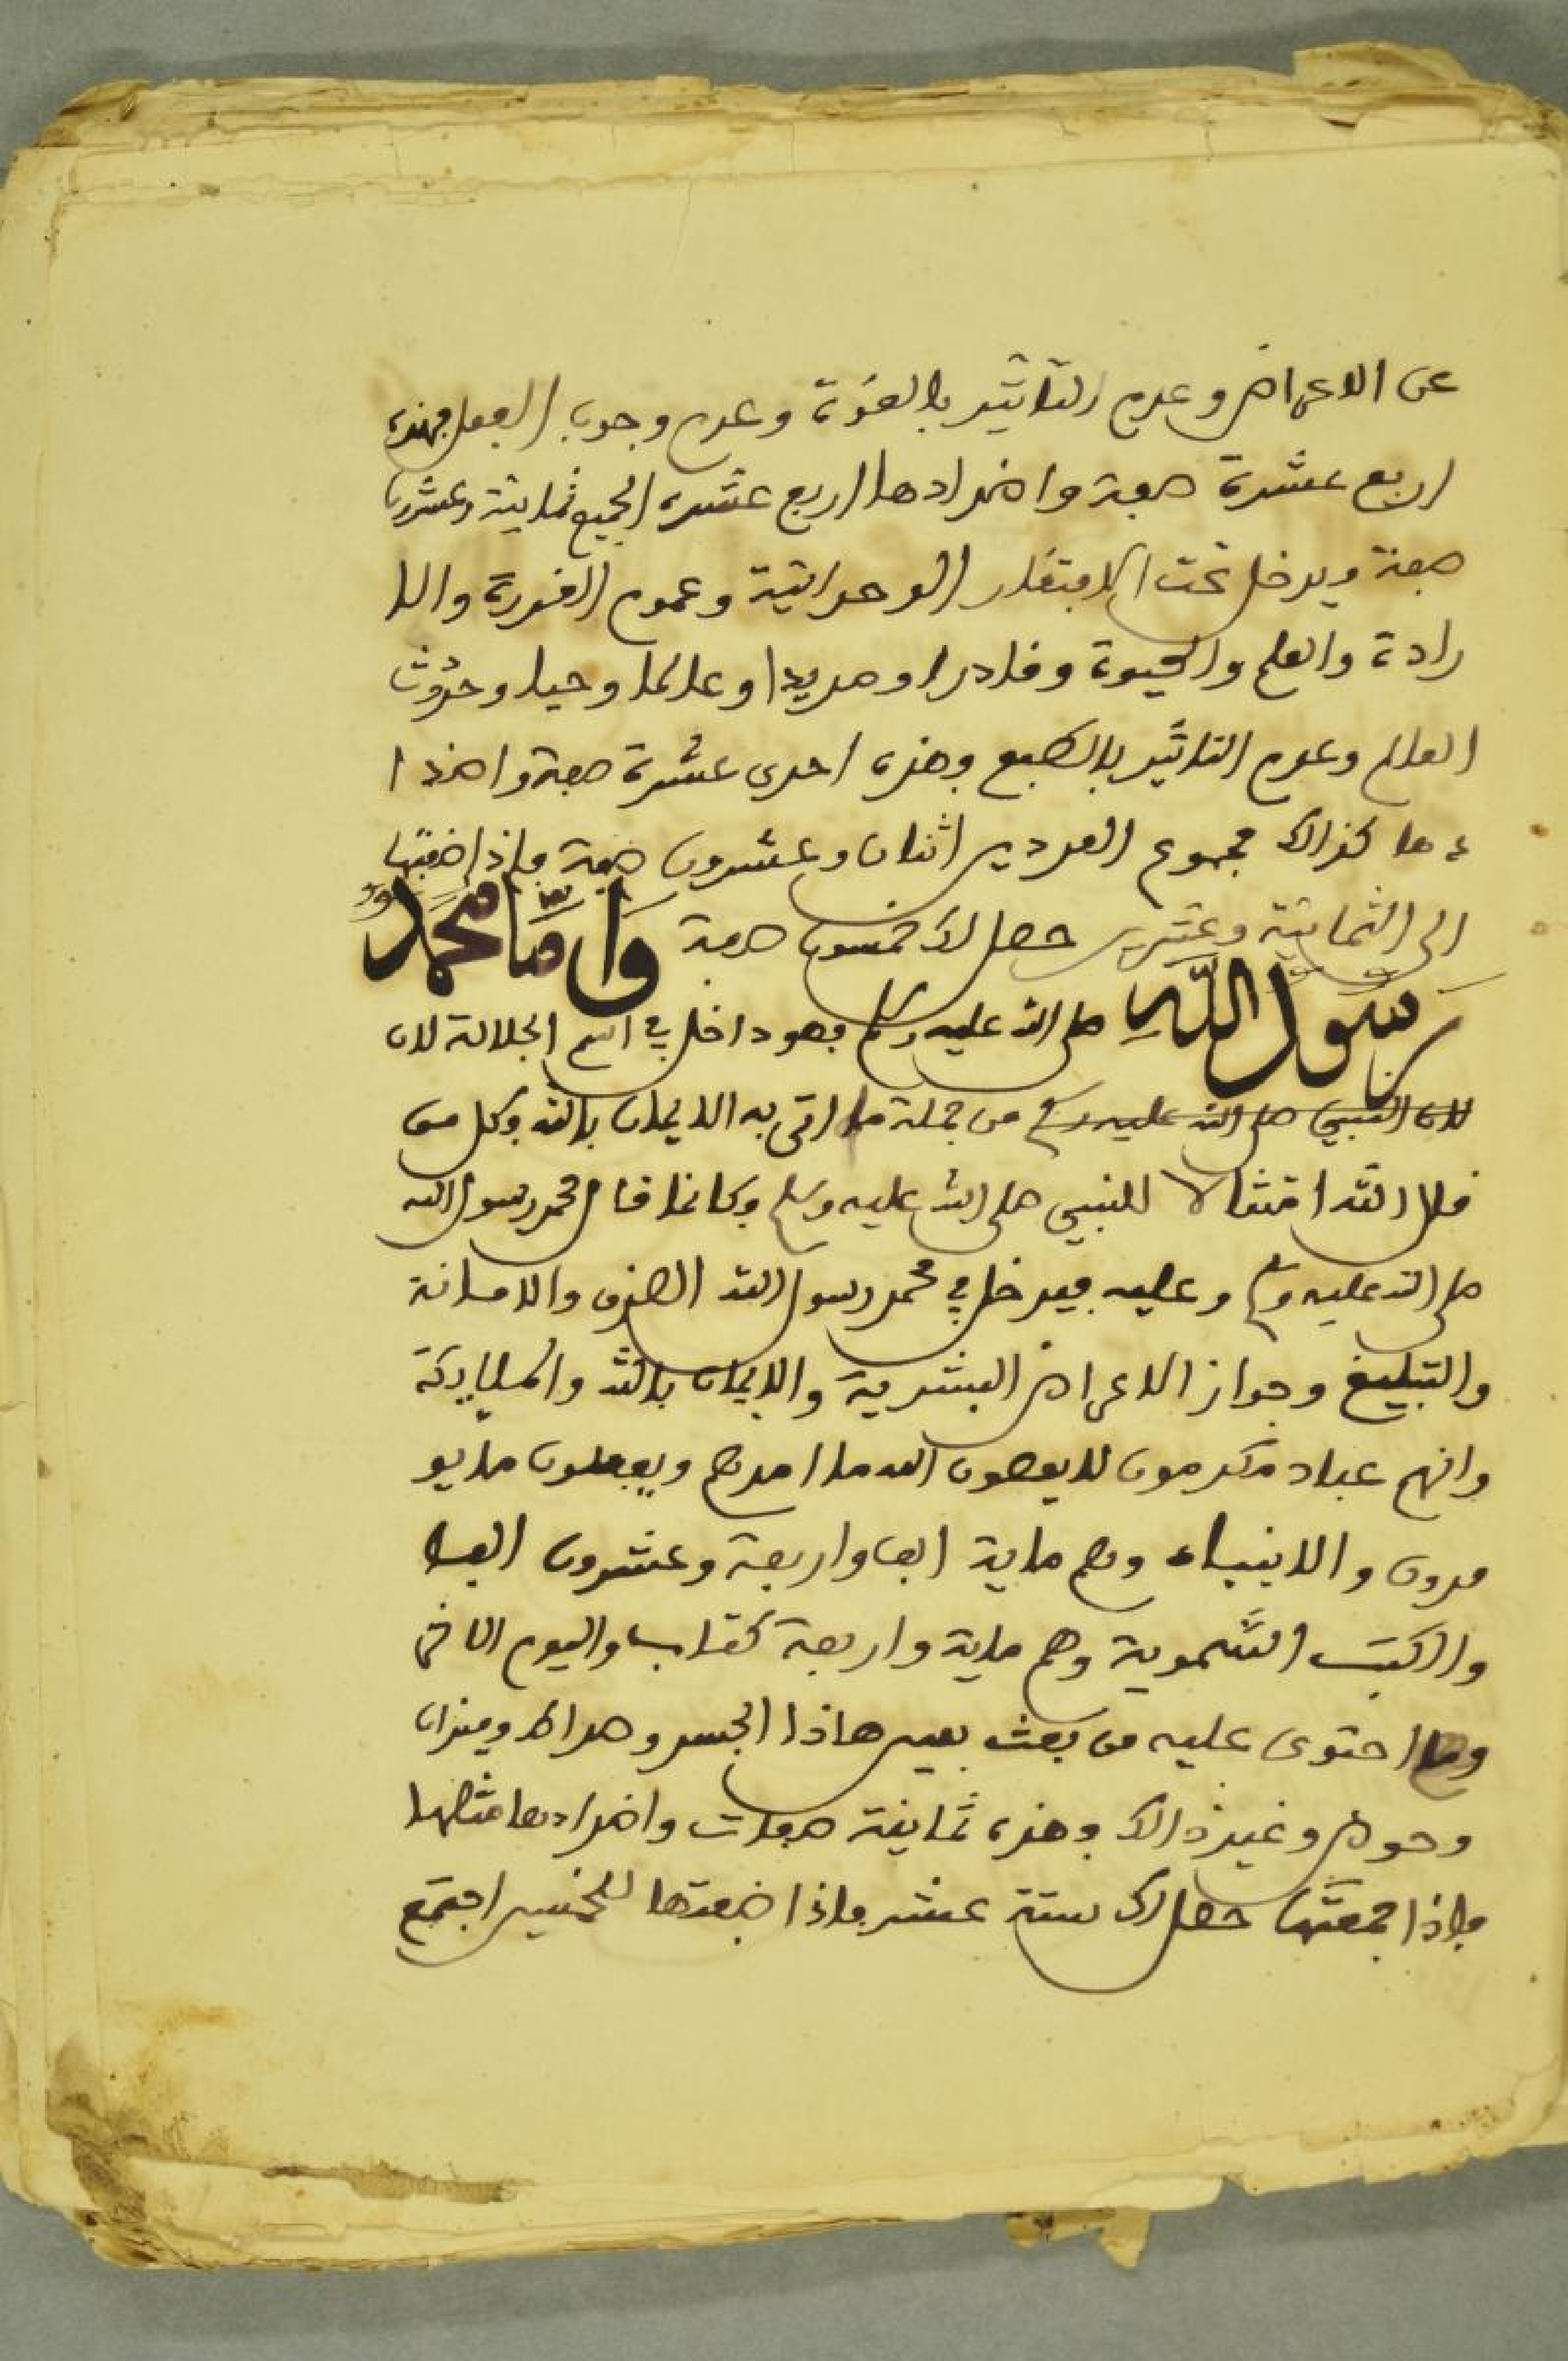 عن الاعراض وعدم التاثير بالقوة وعدم وجوب الفعل فهذه
اربع عشرة صفة واضدادها اربع عشرة الجميع ثمانية وعشرون
صفة ويدخل تحت الافتقار الوحدانية وعموم القدرة والا
رادة والعلم والحيوة وقادرا ومريدا وعالما وحيا وحدوث
العالم وعدم التاثير بالطبع وهذه احدى عشرة صفة واضدا
دها كذالك مجموع العددين اثنان وعشرون صفة فاذا ضفتها
الى الثمانية وعشرين حصل لك خمسون صفة وَأمَّا مُحَمَّدٌ
رَسُولُ اللَّهِ صلى الله عليه وسلم فهو داخل في اسم الجلالة لان
لان النبي صلى الله عليه وسلم من جملة ما اتى به الايمان بالله وكل من
قال الله امتثالا للنبي صلى الله عليه وسلم فكانما قال محمد رسول الله
صلى الله عليه وسلم وعليه فيدخل في محمد رسول الله الصدق والامانة
والتبليغ وجواز الاعراض البشرية والايمان بالله والملايكة
وانهم عباد مكرمون لا يعصون الله ما امرهم ويفعلون ما يو
مرون والانبياء وهم ماية الف واربعة وعشرون الفا
والكتب السَّموية وهم ماية واربعة كتاب واليوم الاخر
وما احتوى عليه من بعث بعين هاذا الجسد وصراط وميزان
وحوض وغير ذالك وهذه ثمانية صفات واضدادها مثلها
فاذا جمعتها حصل لك ستة عشر فاذا ضفتها للخمسين اجتمع